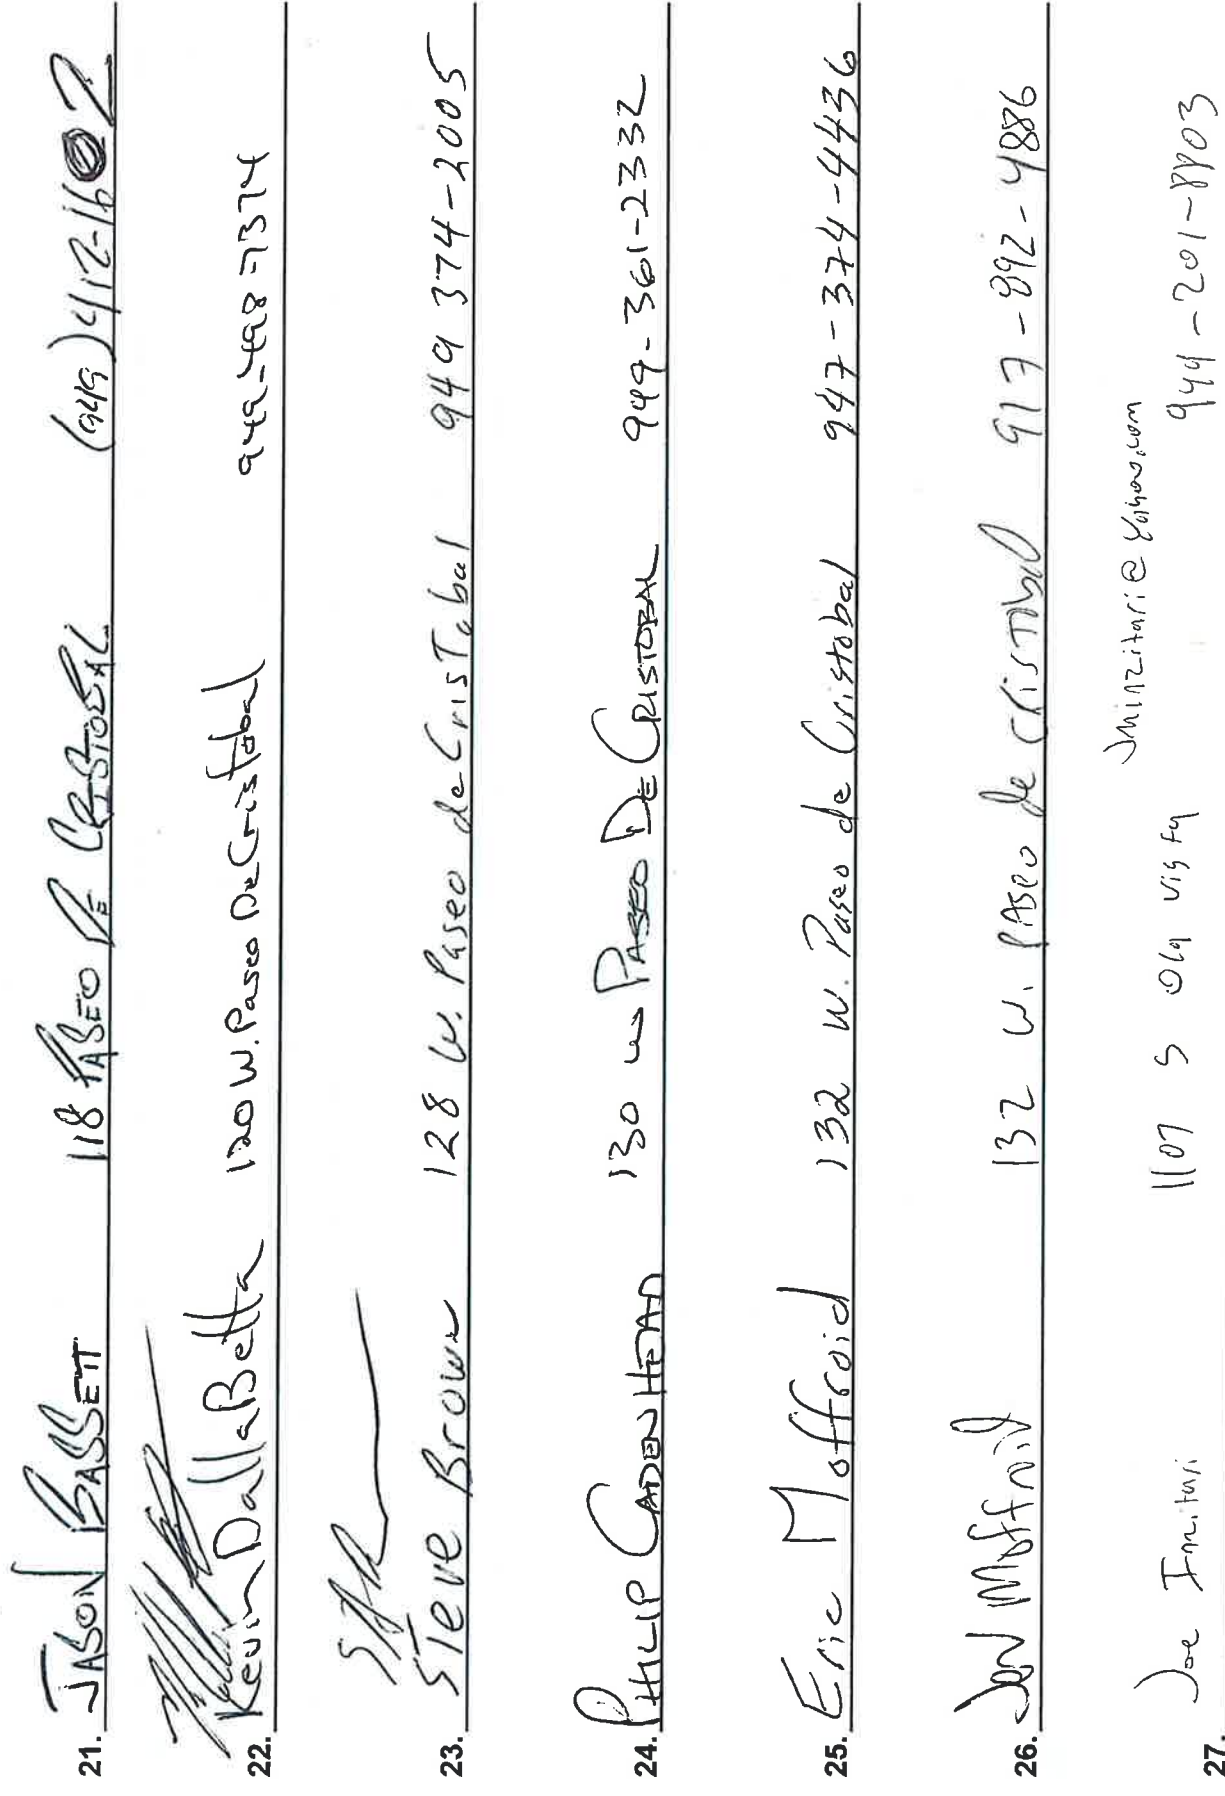 21. JASON BASSETT 118 PASEO DE CRISTOBAL (949) 412-1602
22. Kevin DallaBetta 120 W. Paseo De Cristobal 949-498-7374
23. Steve Brown 128 W. Paseo de Cristobal 949 374-2005
24. PHILIP CADENHEAD 130 W PASEO DE CRISTOBAL 949-361-2332
25. Eric Moffroid 132 W. Paseo de Cristobal 947-374-4436
26. Jen Moffroid 132 W. PASEO de Cristobal 917-892-4886
@yahoo.com
27. Joe 1107 S Ola vista 949-201-